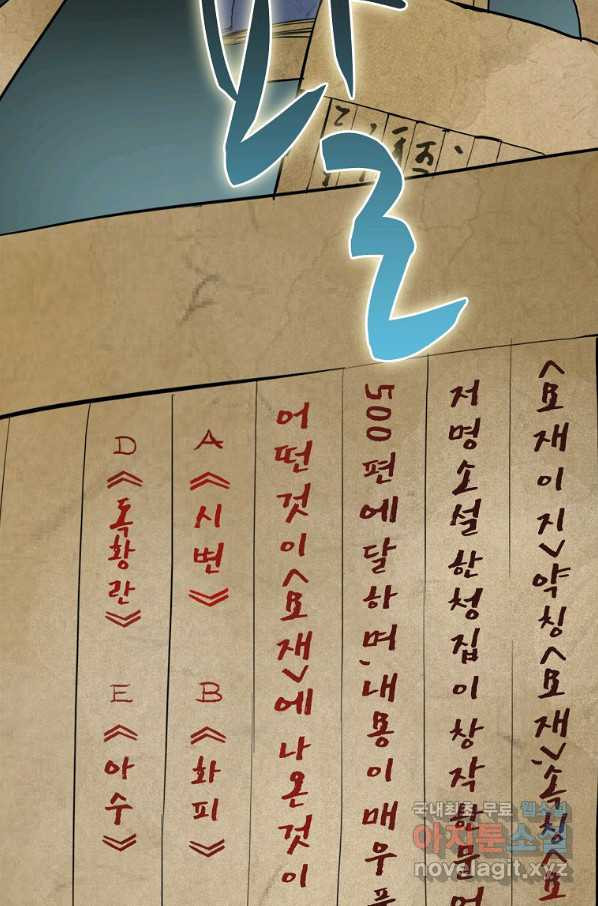 촤
르
<묘재이지>약칭<묘재>,속칭<묘
저명소설한청집이창작한문머
500편에달하며,내용이매우풍
어떤것이<묘재>에나온것이
A《시변》 B《화피》
D《독황란》 E《아수》
국내최초 무료 웹소설
아지툰소설
novelagit.xyz